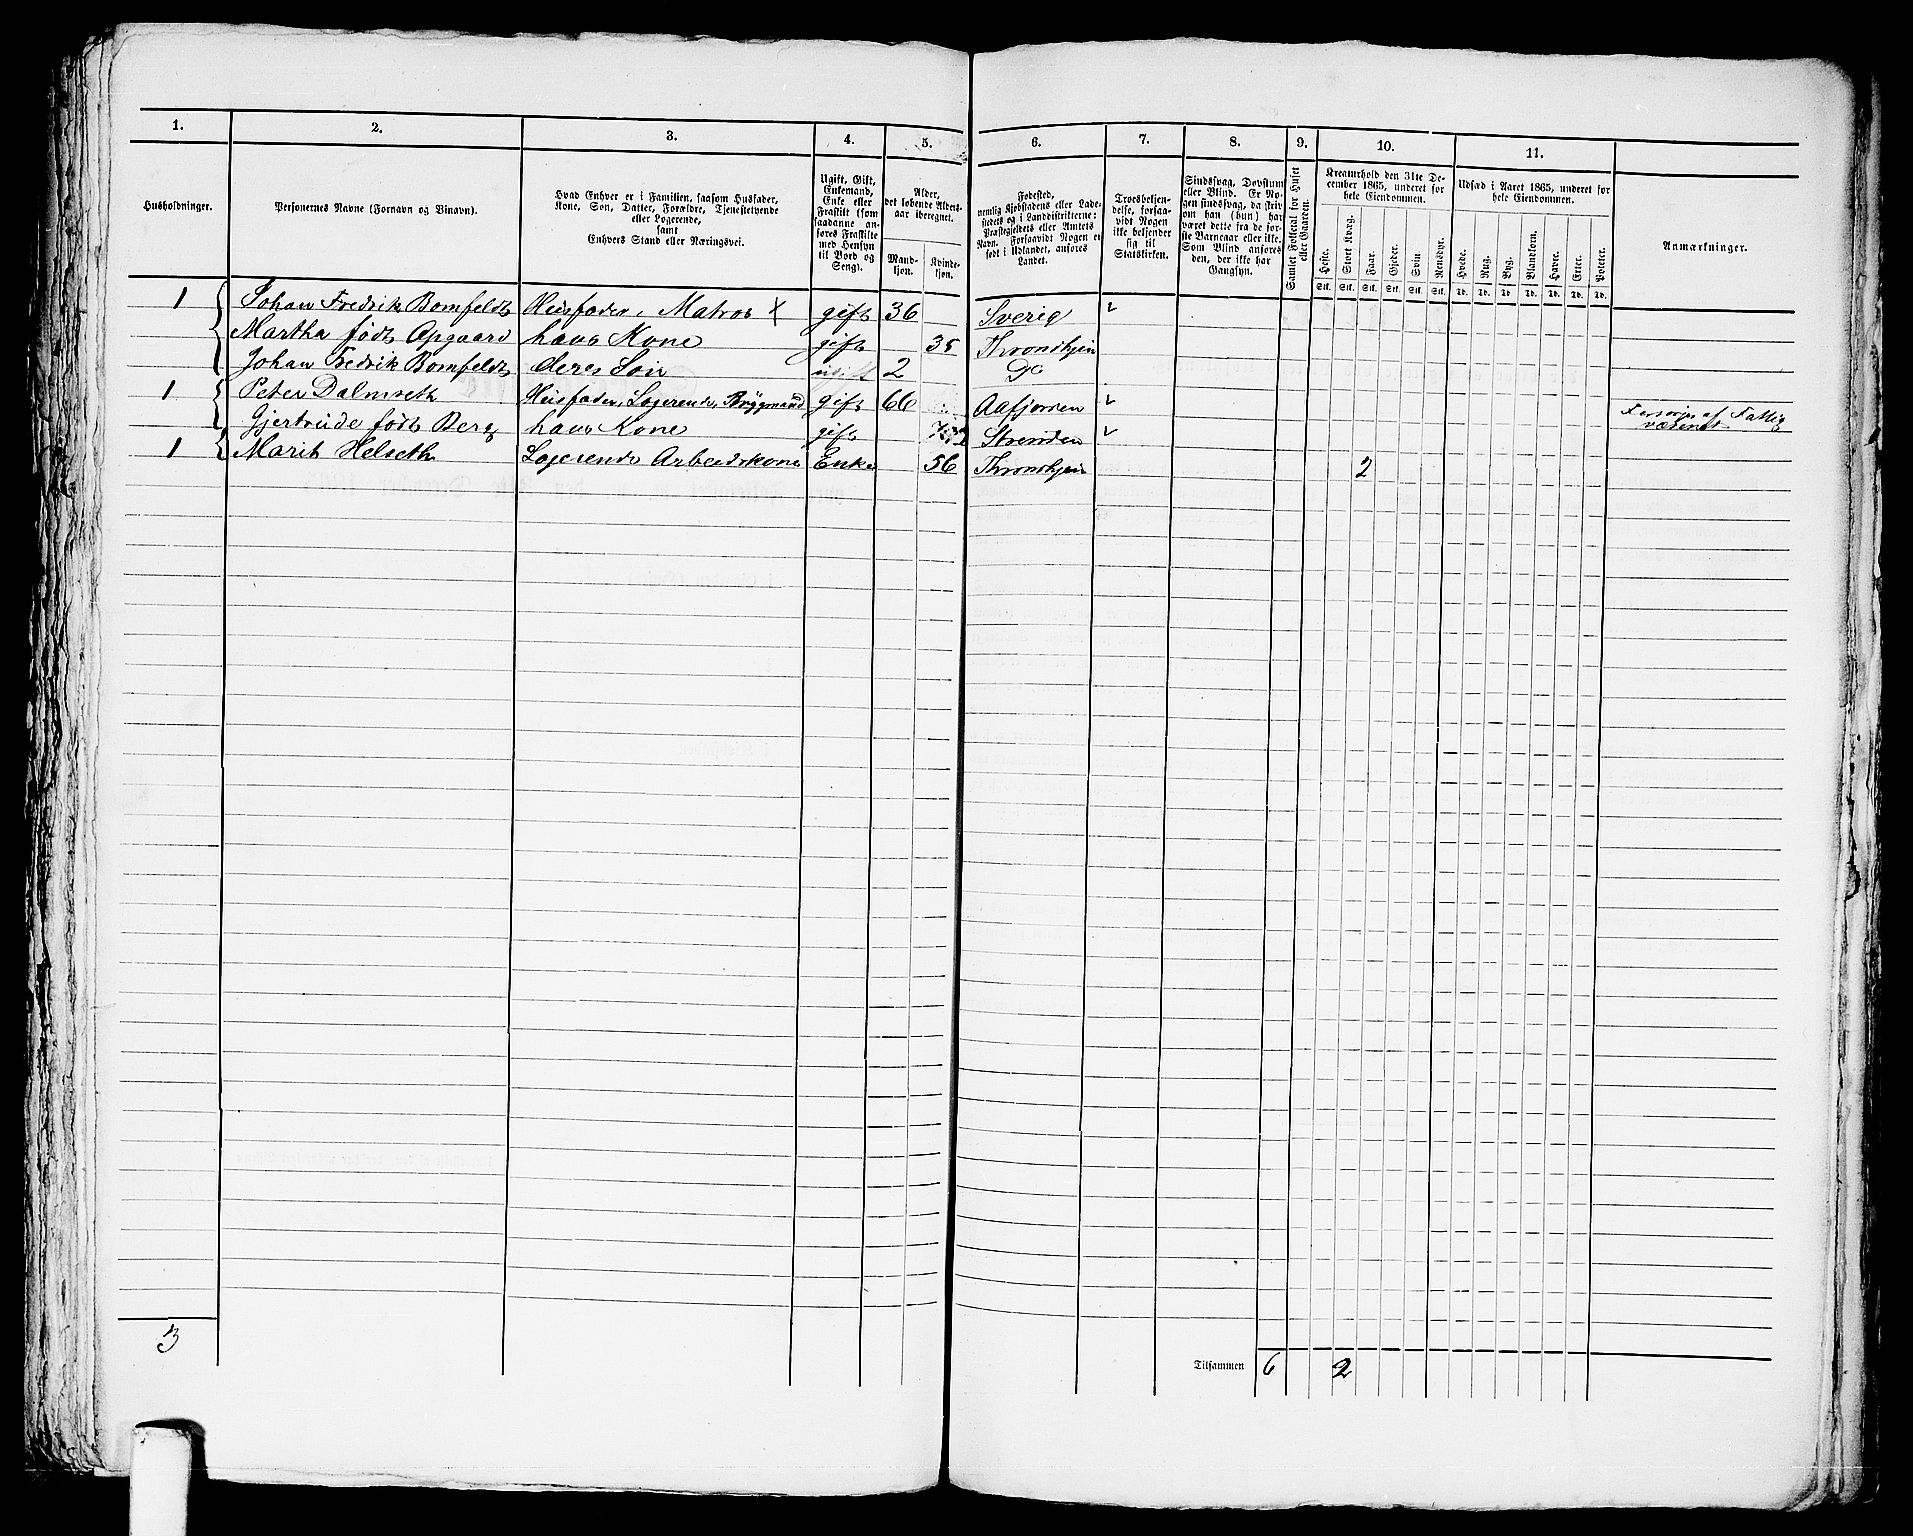 1. 2. 3. 4. 5. 6. 7. 8. 9. 10. 11.
Husholdninger.
Personernes Navne (Fornavn og Vinavn).
Hvad Enhver er i Familien, saasom Husfader,
Kone, Søn, Datter, Forældre, Tjenestetyende
eller Logerende,
samt
Enhvers Stand eller Næringsvei.
Ugift, Gift,
Enkemand,
Enke eller
Fraskilt (som
saadanne an-
føres Fraskilte
med Hensyn
til Bord og
Seng).
Alder,
det løbende Alders-
aar iberegnet.
Mand-
kjøn.
Kvinde-
kjøn.
Fødested,
nemlig Kjøbstadens eller Lade-
stedets og i Landdistrikterne:
Præstegjeldets eller Amtets
Navn. Forsaavidt Nogen er
født i Udlandet, anføres
Landet.
Troesbekjen-
delse, forsaa-
vidt Nogen
ikke bekjender
sig til
Statskirken.
Sindssvag, Døvstum
eller Blind. Er No-
gen sindssvag, da skriv
om han (hun) har
været dette fra de før-
ste Barneaar eller ikke.
Som Blind anføres
den, der ikke har
Gangsyn.
Samlet Folketal for Huset
eller Gaarden.
Kreaturhold den 31te De-
cember 1865, underet for
hele Eiendommen.
Heste. Stort Kvæg. Faar. Gjeder. Svin. Rensdyr.
Stk. Stk. Stk. Stk. Stk. Stk.
Udsæd i Aaret 1865, underet for
hele Eiendommen.
Hvede. Rug. Byg. Blandkorn. Havre. Erter. Poteter.
Td. Td. Td. Td. Td. Td. Td.
Anmærkninger.
1 Johan Fredrik Bomfeldt Husfader, Matros X gift 36 Sverig
Martha født Opgaard hans Kone gift 35 Throndhjem
Johan Fredrik Bomfeldt deres Søn ugift 2 Do
1 Peter Dalmseth Husfader, Logerende, Bryggmand gift 66 Aafjorden
Gjertrude født Berg hans Kone gift Strinden Forsørges af Fattig
væsenet
1 Marit Helseth Logerende Arbeidskone Enke 56 Throndhjem 2
3 Tilsammen 6 2